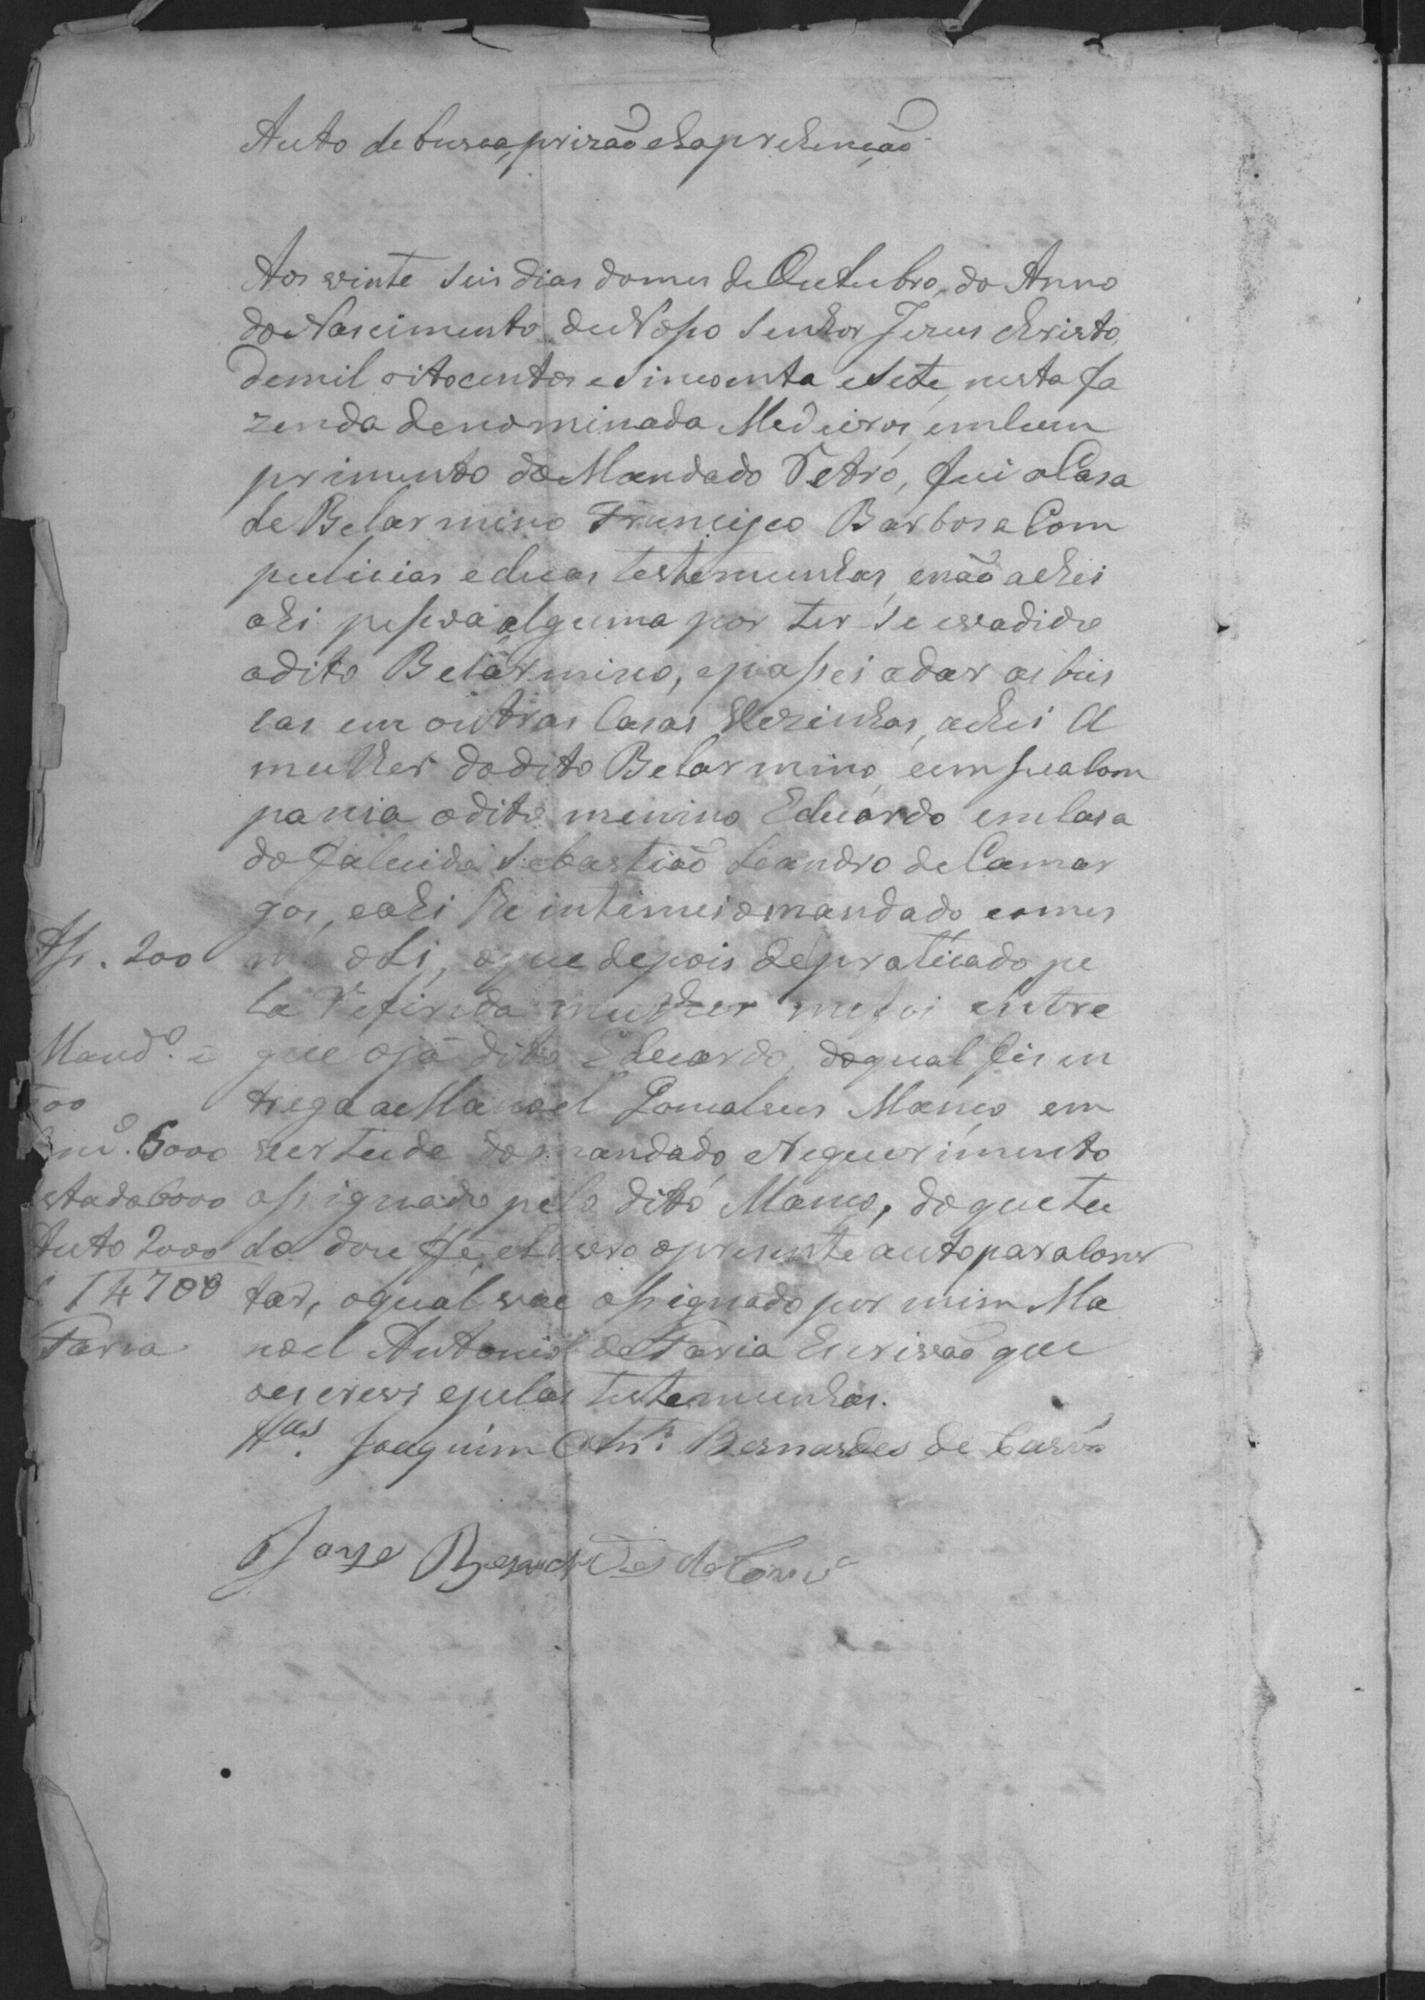 Auto de busca, prizão ehaprehenção
Aos vinte seis dias domes de Outubro, do Anno
do Nascimento de Nosso Senhor Jezus Christo,
demil oitocentos e Sincoenta e Sete, nesta fa
zenda denominada Medeiros, emCum
primento do Mandado Retro, fui aCasa
de Belarmino Francisco Barbosa Com
puliciais eduas testemunhas, enão achei
ahi pessoa alguma por ter se evadido
odito Belarmino, epassei adar as bus
cas em outras Casas Vezinhas, achei A
mulher dodito Belarmino, eem sua Com
pania odito menino Eduardo emCasa
do falecido Sebastião Leandro de Camar
gos, eahi lhe intimei omandado
ahi, oque depois depraticado pe
la Referida mulher mefoi entre
gue oja dito Eduardo, doqual fis en
trega a Manoel Gonçalves Manço em
vertude do mandado e Requerimento
assignado pelo dito Manço, doque tu
do dou fé, eLavro opresente auto para Cons
tar, oqual vae assignado por mim Ma
noel Antonio de Faria Escrivão que
oescrevi epelas testemunhas.
Joaquim Antº Bernardes de
Jorge Bernardes de
200
Mandº.
6000
estada 6000
Auto 2000
14700
Faria